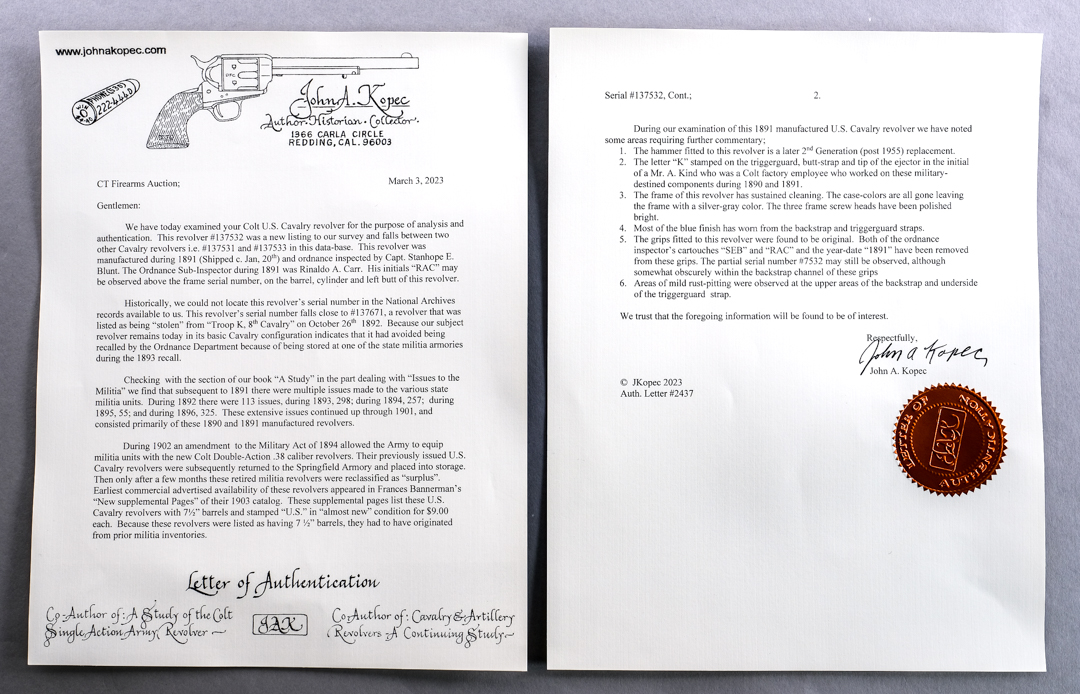 www.johnakopec.com
PHONE(530)
222-4440
John A. Kopec
Author·Historian·Collector·
1366 CARLA CIRCLE
REDDING, CAL. 96003
CT Firearms Auction;
March 3, 2023
Gentlemen:
We have today examined your Colt U.S. Cavalry revolver for the purpose of analysis and
authentication. This revolver #137532 was a new listing to our survey and falls between two
other Cavalry revolvers i.e. #137531 and #137533 in this data-base. This revolver was
manufactured during 1891 (Shipped c. Jan, 20th) and ordnance inspected by Capt. Stanhope E.
Blunt. The Ordnance Sub-Inspector during 1891 was Rinaldo A. Carr. His initials "RAC" may
be observed above the frame serial number, on the barrel, cylinder and left butt of this revolver.
Historically, we could not locate this revolver's serial number in the National Archives
records available to us. This revolver's serial number falls close to #137671, a revolver that was
listed as being "stolen" from "Troop K, 8th Cavalry" on October 26th 1892. Because our subject
revolver remains today in its basic Cavalry configuration indicates that it had avoided being
recalled by the Ordnance Department because of being stored at one of the state militia armories
during the 1893 recall.
Checking with the section of our book "A Study" in the part dealing with "Issues to the
Militia" we find that subsequent to 1891 there were multiple issues made to the various state
militia units. During 1892 there were 113 issues, during 1893, 298; during 1894, 257; during
1895, 55; and during 1896, 325. These extensive issues continued up through 1901, and
consisted primarily of these 1890 and 1891 manufactured revolvers.
During 1902 an amendment to the Military Act of 1894 allowed the Army to equip
militia units with the new Colt Double-Action .38 caliber revolvers. Their previously issued U.S.
Cavalry revolvers were subsequently returned to the Springfield Armory and placed into storage.
Then only after a few months these retired militia revolvers were reclassified as "surplus".
Earliest commercial advertised availability of these revolvers appeared in Frances Bannerman's
"New supplemental Pages" of their 1903 catalog. These supplemental pages list these U.S.
Cavalry revolvers with 7½" barrels and stamped "U.S." in "almost new" condition for $9.00
each. Because these revolvers were listed as having 7 ½" barrels, they had to have originated
from prior militia inventories.
Letter of Authentication
Co-Author of: A Study of the Colt
Single Action Army Revolver
JAK
Co-Author of: Cavalry & Artillery
Revolvers A Continuing Study
Serial #137532, Cont.;
2.
During our examination of this 1891 manufactured U.S. Cavalry revolver we have noted
some areas requiring further commentary;
1. The hammer fitted to this revolver is a later 2nd Generation (post 1955) replacement.
2. The letter "K" stamped on the triggerguard, butt-strap and tip of the ejector in the initial
of a Mr. A. Kind who was a Colt factory employee who worked on these military-
destined components during 1890 and 1891.
3. The frame of this revolver has sustained cleaning. The case-colors are all gone leaving
the frame with a silver-gray color. The three frame screw heads have been polished
bright.
4. Most of the blue finish has worn from the backstrap and triggerguard straps.
5. The grips fitted to this revolver were found to be original. Both of the ordnance
inspector's cartouches "SEB" and "RAC" and the year-date "1891" have been removed
from these grips. The partial serial number #7532 may still be observed, although
somewhat obscurely within the backstrap channel of these grips
6. Areas of mild rust-pitting were observed at the upper areas of the backstrap and underside
of the triggerguard strap.
We trust that the foregoing information will be found to be of interest.
Respectfully,
John A Kopec
John A. Kopec
© JKopec 2023
Auth. Letter #2437
LETTER OF
JAK